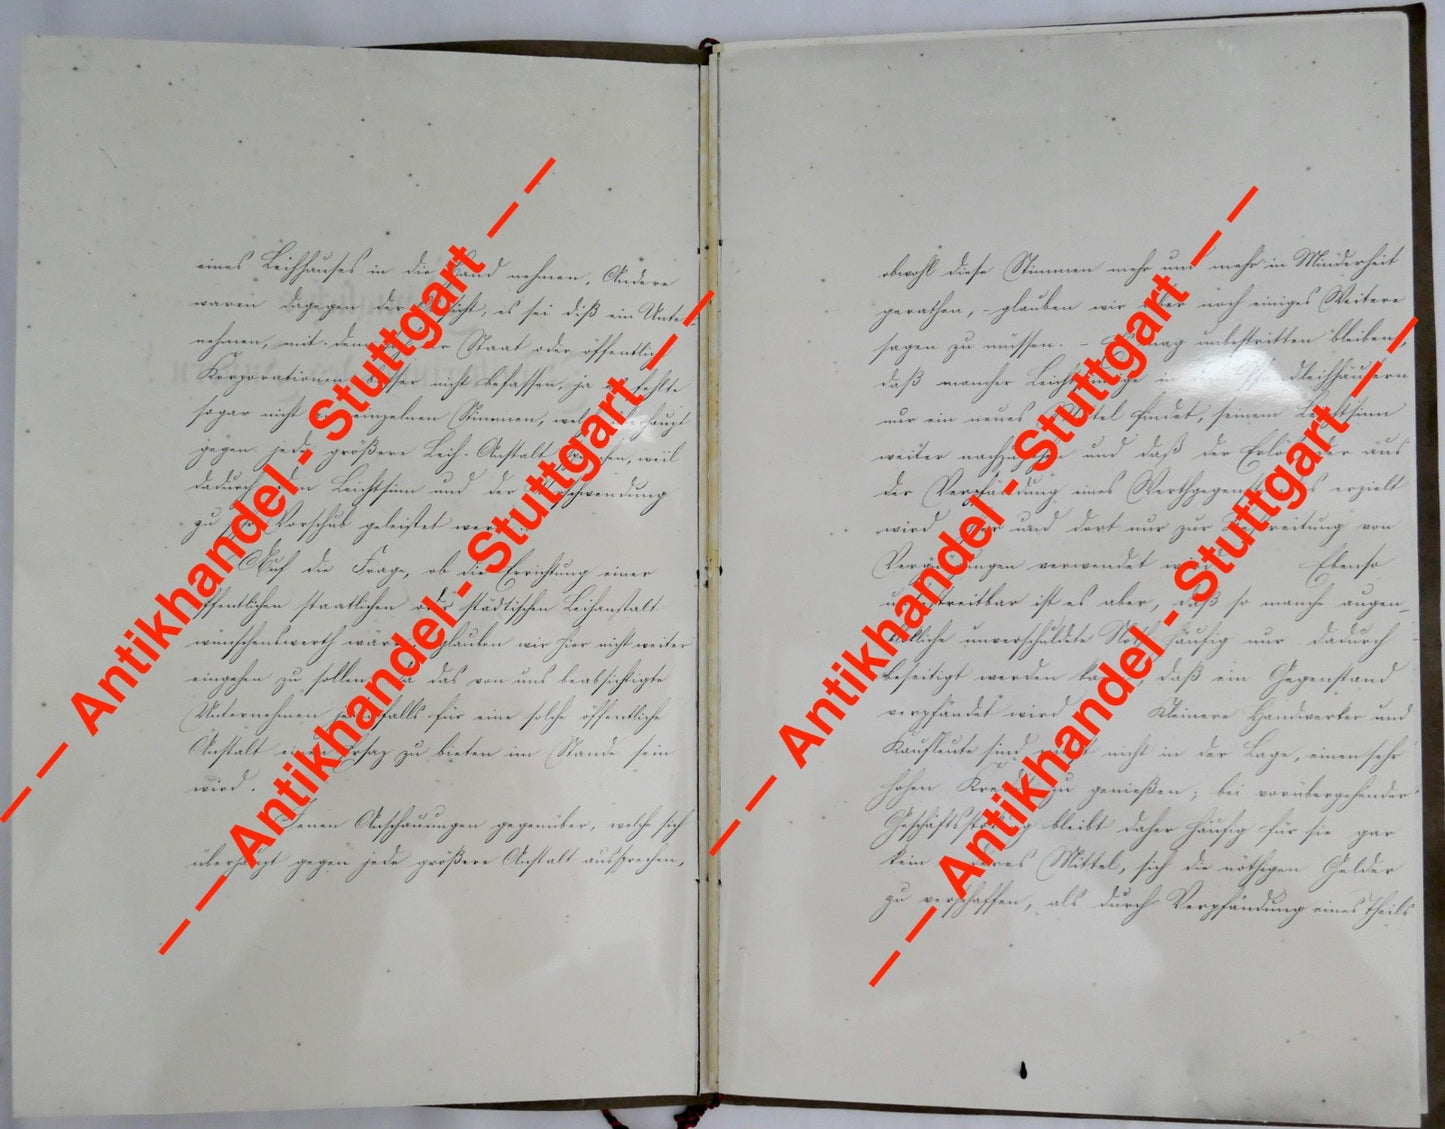 eines Leihhauses in die Hand nehmen, Andere
waren dagegen der Ansicht, es sei diß ein Unter-
nehmen, mit dem sich der Staat oder öffentliche
Korporationen besser nicht befassen, ja es fehlte
sogar nicht an einzelnen Stimmen, welche überhaupt
gegen jede größere Leih-Anstalt sprechen, weil
dadurch dem Leichtsinn und der Verschwendung
zu Vorschub geleistet werde.
Auf die Frage, ob die Errichtung einer
öffentlichen staatlichen oder städtischen Leihanstalt
wünschenswerth wäre, glauben wir hier nicht weiter
eingehen zu sollen, da das von uns beabsichtigte
Unternehmen jedenfalls für eine solche öffentliche
Anstalt einen Ersatz zu bieten im Stande sein
wird.
Jenen Anschauungen gegenüber, welche sich
überhaupt gegen jede größere Anstalt aussprechen,
obwohl diese Stimmen mehr und mehr in Minderheit
gerathen, - glauben wir aber noch einiges Weitere
sagen zu müssen. - Es mag unbestritten bleiben,
daß mancher Leichtsinnige in den Pfandleihhäusern
nur ein neues Mittel findet, seinem Leichtsinn
weiter nachzugehen und daß der Erlös, der aus
der Verpfändung eines Werthgegenstandes erzielt
wird, hier und dort nur zur Bestreitung von
Vergnügungen verwendet wird. Ebenso
unbestreitbar ist es aber, daß so manche augen-
blickliche unverschuldete Noth häufig nur dadurch
beseitigt werden kann, daß ein Gegenstand
verpfändet wird. Kleinere Handwerker und
Kaufleute sind meist nicht in der Lage, einen sehr
hohen Kredit zu genießen; bei vorübergehender
Geschäftsstockung bleibt daher häufig für sie gar
kein anderes Mittel, sich die nöthigen Gelder
zu verschaffen, als durch Verpfändung eines Theils
— — Antikhandel - Stuttgart — —
— — Antikhandel - Stuttgart — —
— — Antikhandel - Stuttgart — —
— — Antikhandel - Stuttgart — —